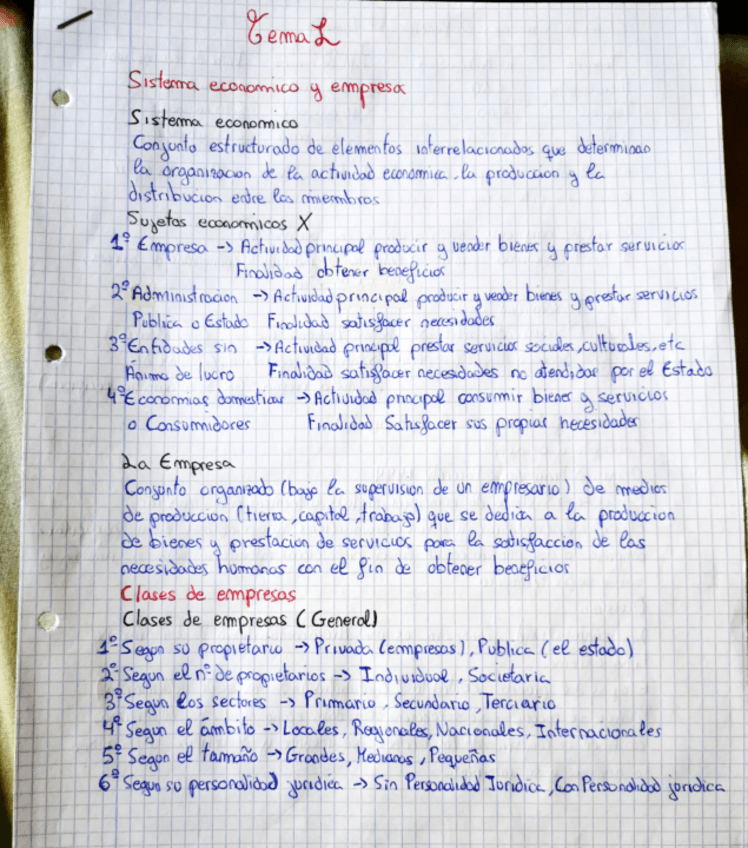 Tema 1
Sistema economico y empresa
Sistema economico
Conjunto estructurado de elementos interrelacionados que determinan
la organizacion de la actividad economica, la produccion y la
distribucion entre los miembros
Sujetos economicos X
1º Empresa -> Actividad principal producir y vender bienes y prestar servicios
Finalidad obtener beneficios
2º Administracion -> Actividad principal producir y vender bienes y prestar servicios
Publica o Estado Finalidad satisfacer necesidades
3º Entidades sin -> Actividad principal prestar servicios sociales, culturales, etc
Ánimo de lucro Finalidad satisfacer necesidades no atendidas por el Estado
4º Economias domesticas -> Actividad principal consumir bienes y servicios
o Consumidores Finalidad Satisfacer sus propias necesidades
La Empresa
Conjunto organizado (bajo la supervision de un empresario) de medios
de produccion (tierra, capital, trabajo) que se dedica a la produccion
de bienes y prestacion de servicios para la satisfaccion de las
necesidades humanas con el fin de obtener beneficios
Clases de empresas
Clases de empresas (General)
1º Segun su propietario -> Privada (empresas), Publica (el estado)
2º Segun el nº de propietarios -> Individual, Societaria
3º Segun los sectores -> Primario, Secundario, Terciario
4º Segun el ámbito -> Locales, Regionales, Nacionales, Internacionales
5º Segun el tamaño -> Grandes, Medianas, Pequeñas
6º Segun su personalidad juridica -> Sin Personalidad Juridica, Con Personalidad juridica